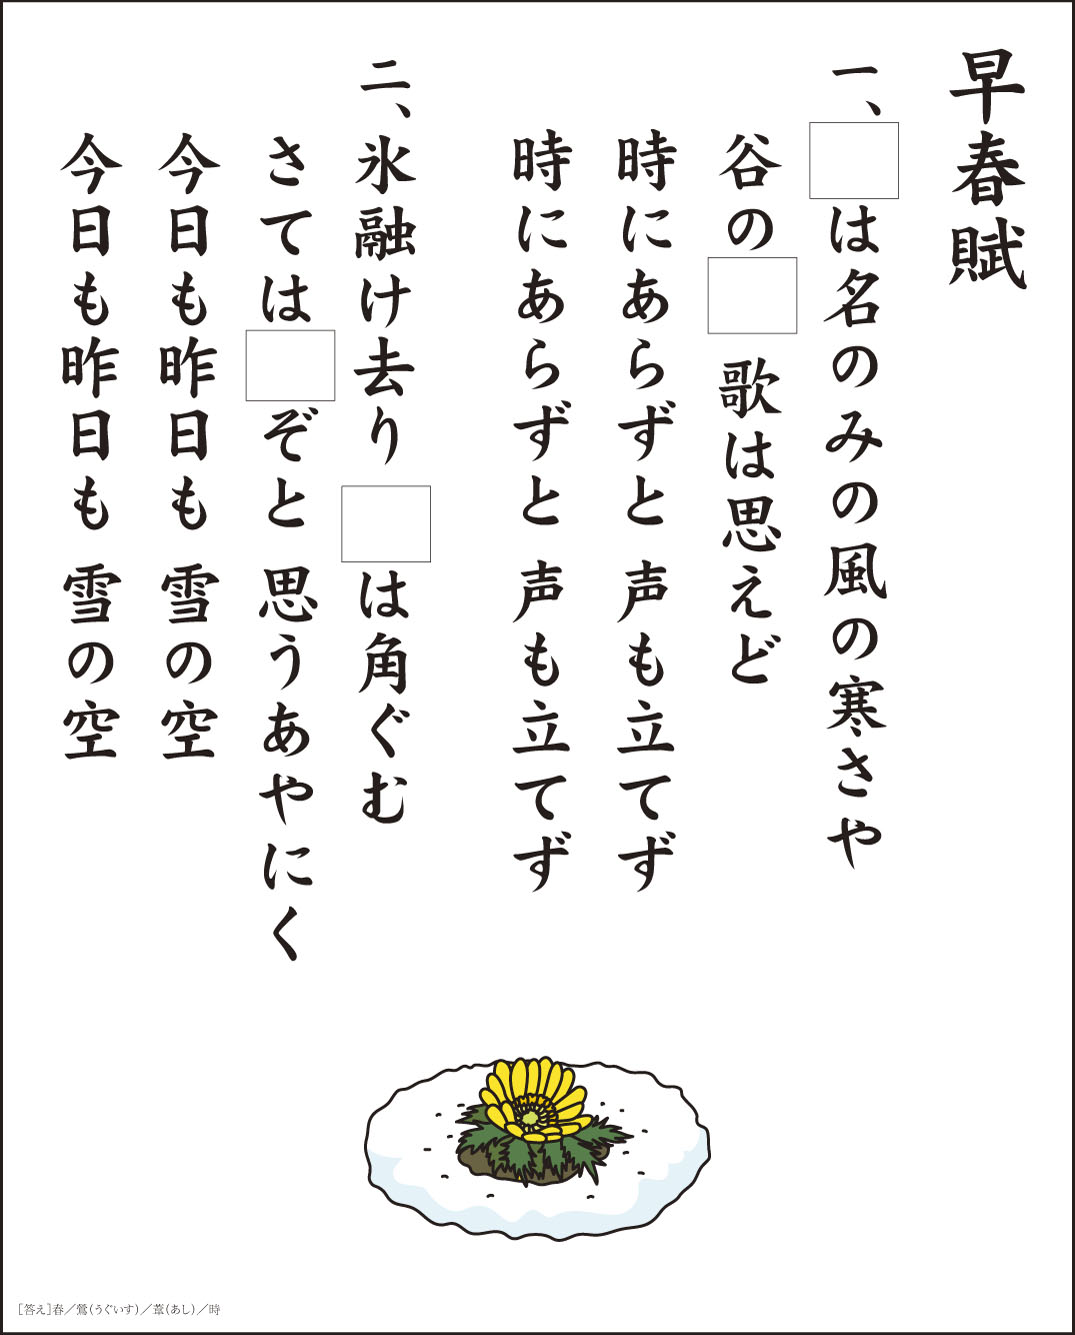 早春賦
一、□は名のみの風の寒さや
谷の□ 歌は思えど
時にあらずと 声も立てず
時にあらずと 声も立てず
二、氷融け去り □は角ぐむ
さては□ぞと 思うあやにく
今日も昨日も 雪の空
今日も昨日も 雪の空
[答え]春／鶯(うぐいす)／葦(あし)／時